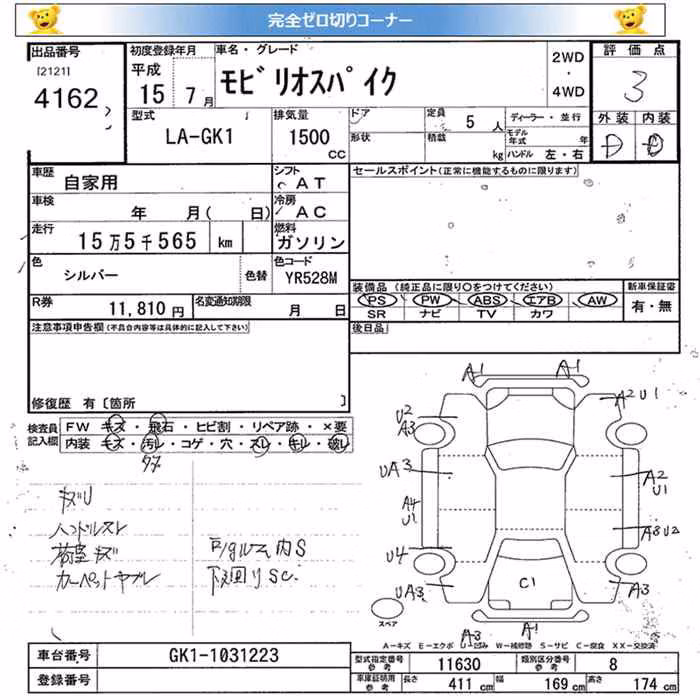 完全ゼロ切りコーナー
出品番号
[2121]
4162
初度登録年月
平成
15年 7月
車名・グレード
モビリオスパイク
2WD
・
4WD
評価点
3
型式
LA-GK1
排気量
1500
CC
ドア
形状
定員
5人
積載
kg
ディーラー・並行
モデル年式 年
ハンドル 左・右
外装 内装
D D
車歴
自家用
シフト
AT
車検
年 月( 日)
冷房
AC
走行
15万5千565 km
燃料
ガソリン
色
シルバー
色替
色コード
YR528M
R券
11,810円
名変通知期限
月 日
セールスポイント(正常に機能するものに限ります)
装備品 (純正品に限り○をつけてください)
PS PW ABS エアB AW
SR ナビ TV カワ
新車保証書
有・無
後日品
注意事項申告欄(不具合内容等は具体的に記入して下さい)
修復歴 有〔箇所 〕
検査員記入欄
FW キズ・飛石・ヒビ割・リペア跡・×要
内装 キズ・汚レ・コゲ・穴・スレ・キレ・破レ
ハンドルスレ
荷室キズ
カーペットヤブレ
内S
下回りSC
A1
A1
A2 U1
U2
A3
UA3
A4
U1
U4
UA3
A2
U1
A3 U2
A3
C1
A3
A1
スペア
A-キズ E-エクボ U-凹み W-補修跡 S-サビ C-腐食 XX-交換済
車台番号
GK1-1031223
登録番号
型式指定番号
参考
11630
類別区分番号
参考
8
車庫証明用
参考
長さ 411cm
幅 169cm
高さ 174cm